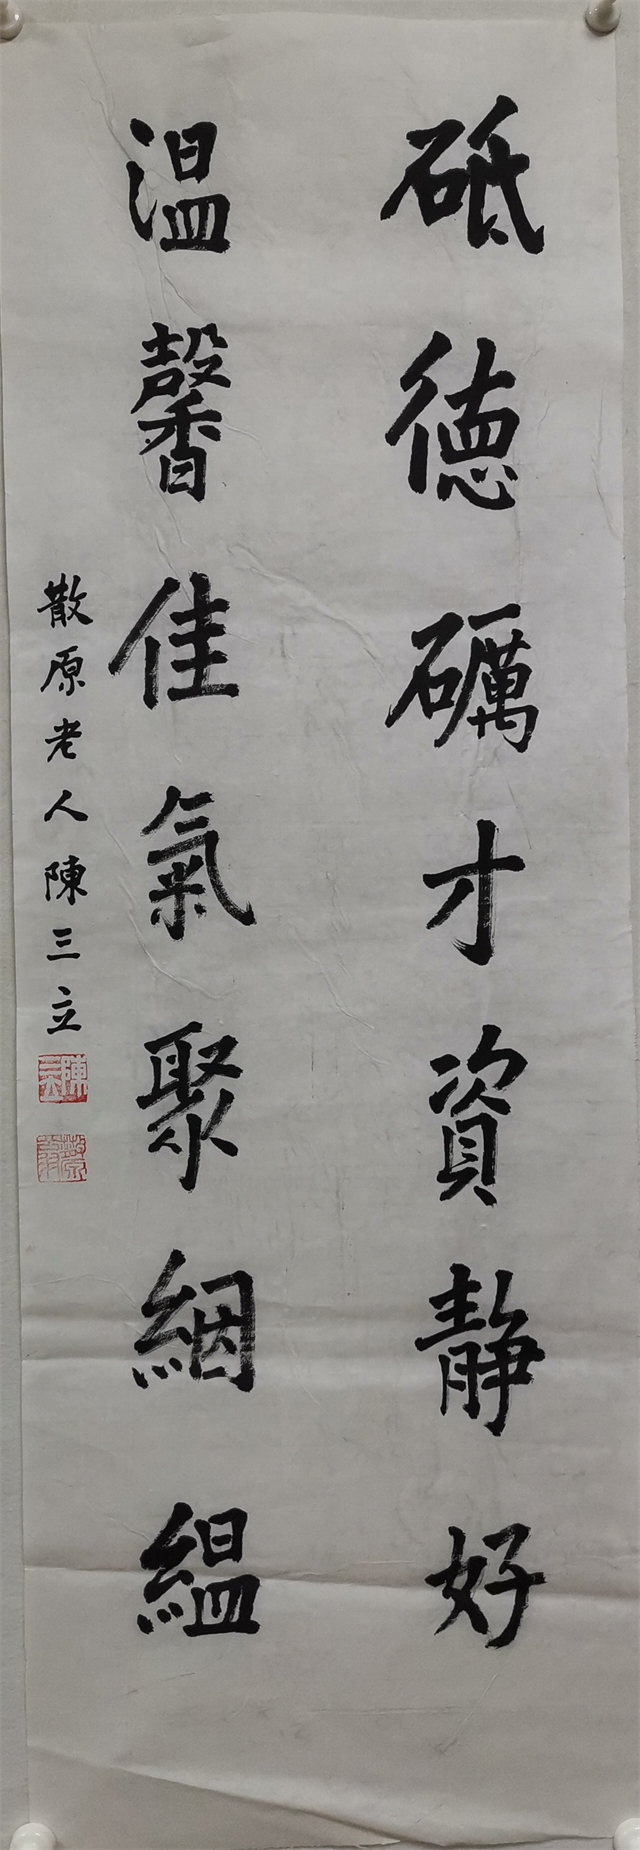 砥德礪才資静好
温馨佳氣聚絪緼
散原老人陳三立
陳三立
散原